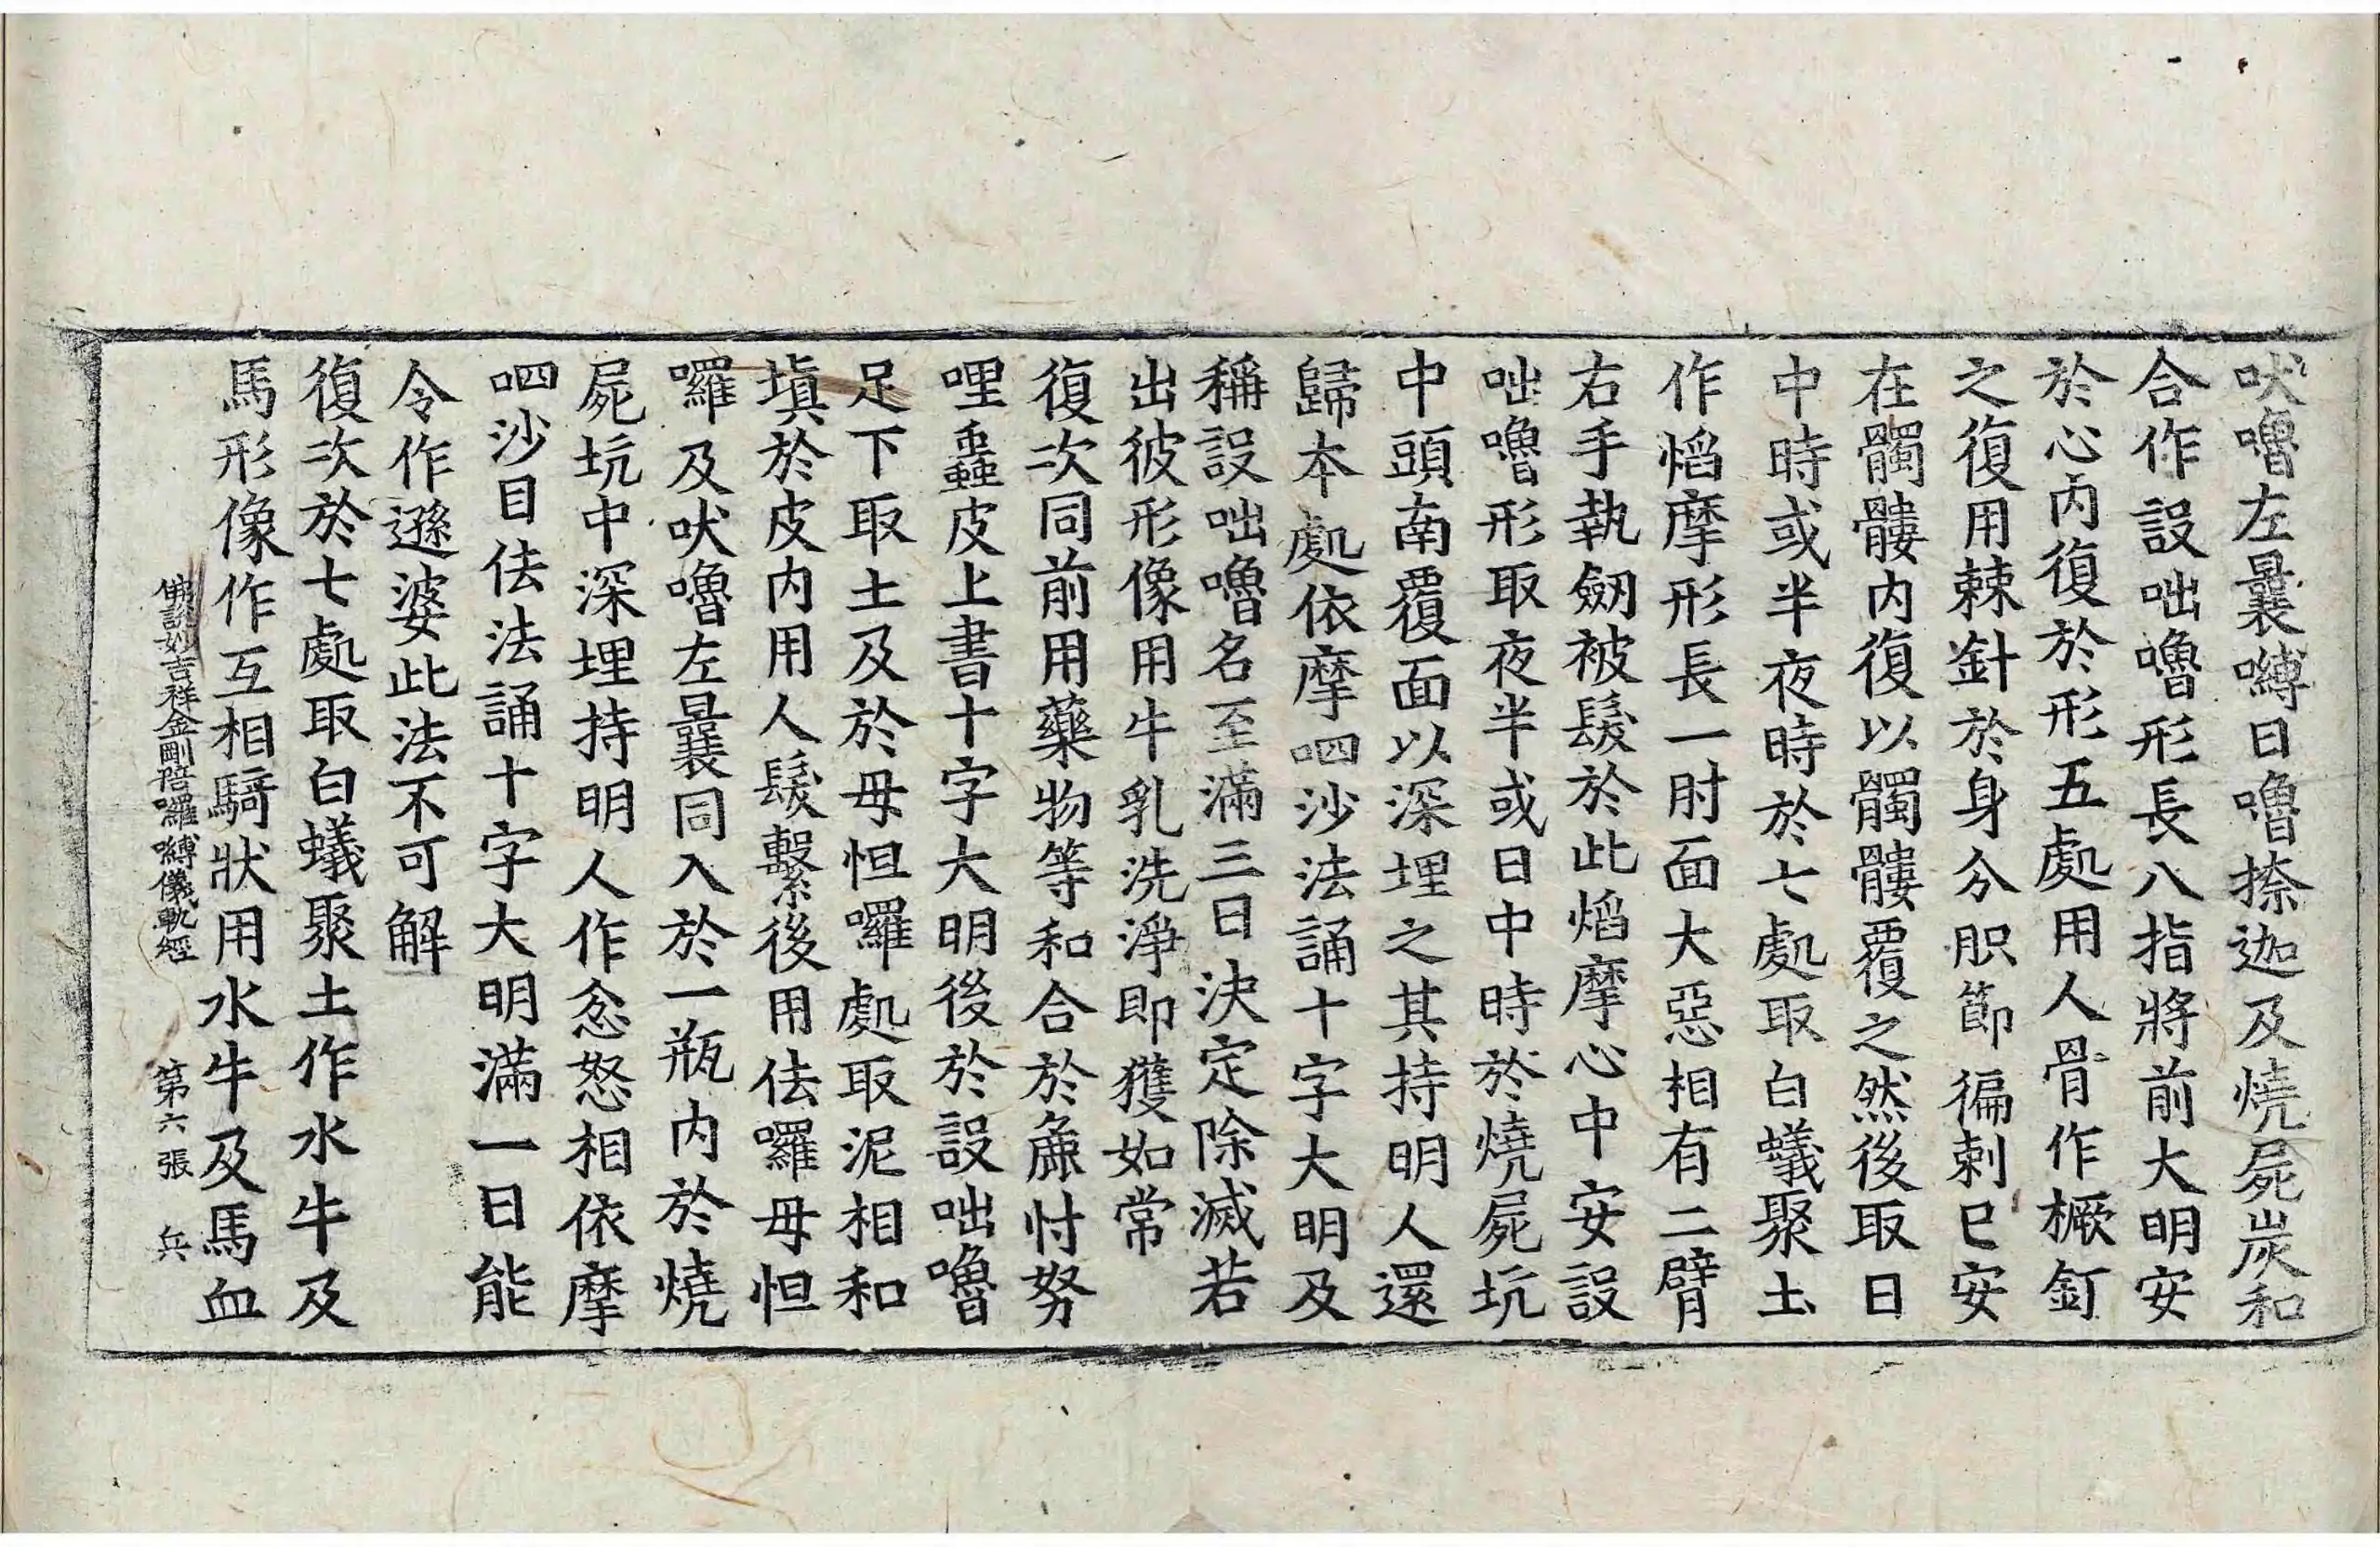 吠嚕左曩嚩日嚕捺迦及燒屍炭和
合作設咄嚕形長八指將前大明安
於心內復於形五處用人骨作橛釘
之復用棘針於身分肢節徧刺已安
在髑髏內復以髑髏覆之然後取日
中時或半夜時於七處取白蟻聚土
作焰摩形長一肘面大惡相有二臂
右手執劒被髮於此焰摩心中安設
咄嚕形取夜半或日中時於燒屍坑
中頭南覆面以深埋之其持明人還
歸本處依摩呬沙法誦十字大明及
稱設咄嚕名至滿三日決定除滅若
出彼形像用牛乳洗淨即獲如常
復次同前用藥物等和合於麁忖努
哩蠱皮上書十字大明後於設咄嚕
足下取土及於母怛囉處取泥相和
塡於皮內用人髮繫後用佉囉母怛
囉及吠嚕左曩同入於一瓶內於燒
屍坑中深埋持明人作忿怒相依摩
呬沙目佉法誦十字大明滿一日能
令作遜婆此法不可解
復次於七處取白蟻聚土作水牛及
馬形像作互相騎狀用水牛及馬血
佛說妙吉祥金剛陪囉嚩儀軌經 第六張 兵